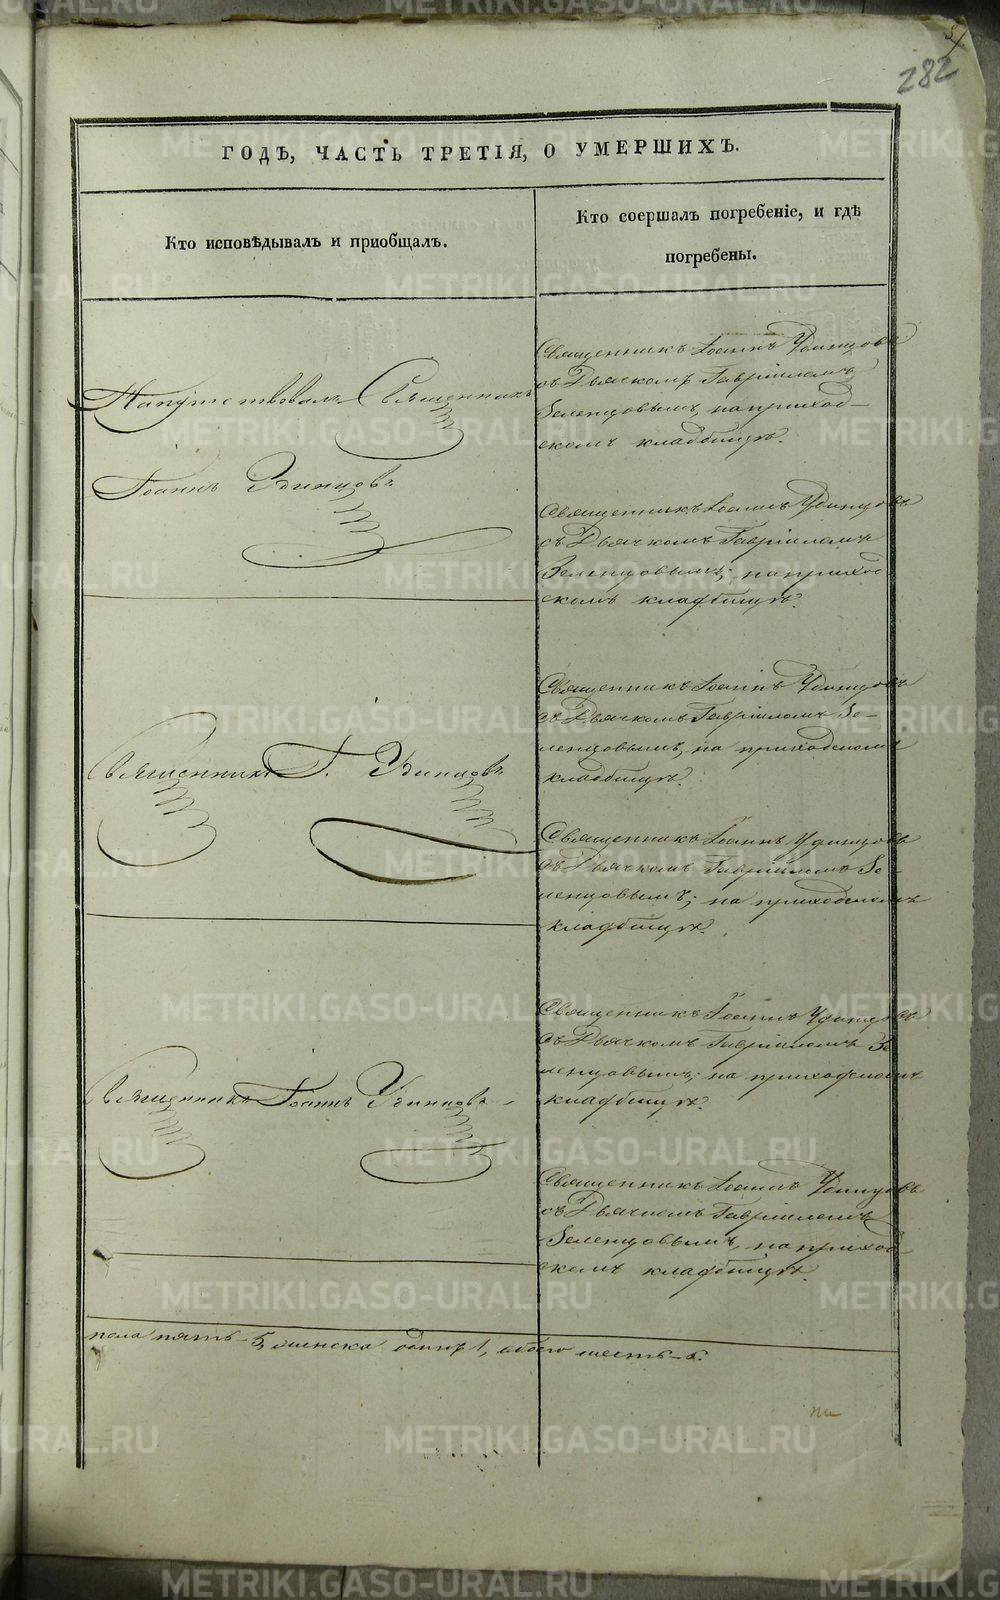 282
ГОДЪ, ЧАСТЬ ТРЕТІЯ, О УМЕРШИХЪ.
Кто исповѣдывалъ и приобщалъ.
Кто соершалъ погребеніе, и гдѣ
погребены.
Напутствовалъ Священникъ
Іоаннъ Удинцовъ
Священникъ І. Удинцовъ
Священникъ Іоаннъ Удинцовъ
Священникъ Іоаннъ Удинцовъ
съ Дьячкомъ Гавріиломъ
Зеленцовымъ, на приход-
скомъ кладбищѣ.
Священникъ Іоаннъ Удинцовъ
съ Дьячкомъ Гавріиломъ
Зеленцовымъ; на приход
скомъ кладбищѣ.
Священникъ Іоаннъ Удинцовъ
съ Дьячкомъ Гавріиломъ Зе-
ленцовымъ, на приходскомъ
кладбищѣ.
Священникъ Іоаннъ Удинцовъ
съ Дьячкомъ Гавріиломъ Зе-
ленцовымъ; на приходскомъ
кладбищѣ.
Священникъ Іоаннъ Удинцовъ
съ Дьячкомъ Гавріиломъ Зе
ленцовымъ; на приходскомъ
кладбищѣ.
Священникъ Іоаннъ Удинцовъ
съ Дьячкомъ Гавріиломъ
Зеленцовымъ, на приход
скомъ кладбищѣ.
пола пять 5, женска одинъ 1, обоего шесть 6.
METRIKI.GASO-URAL.RU